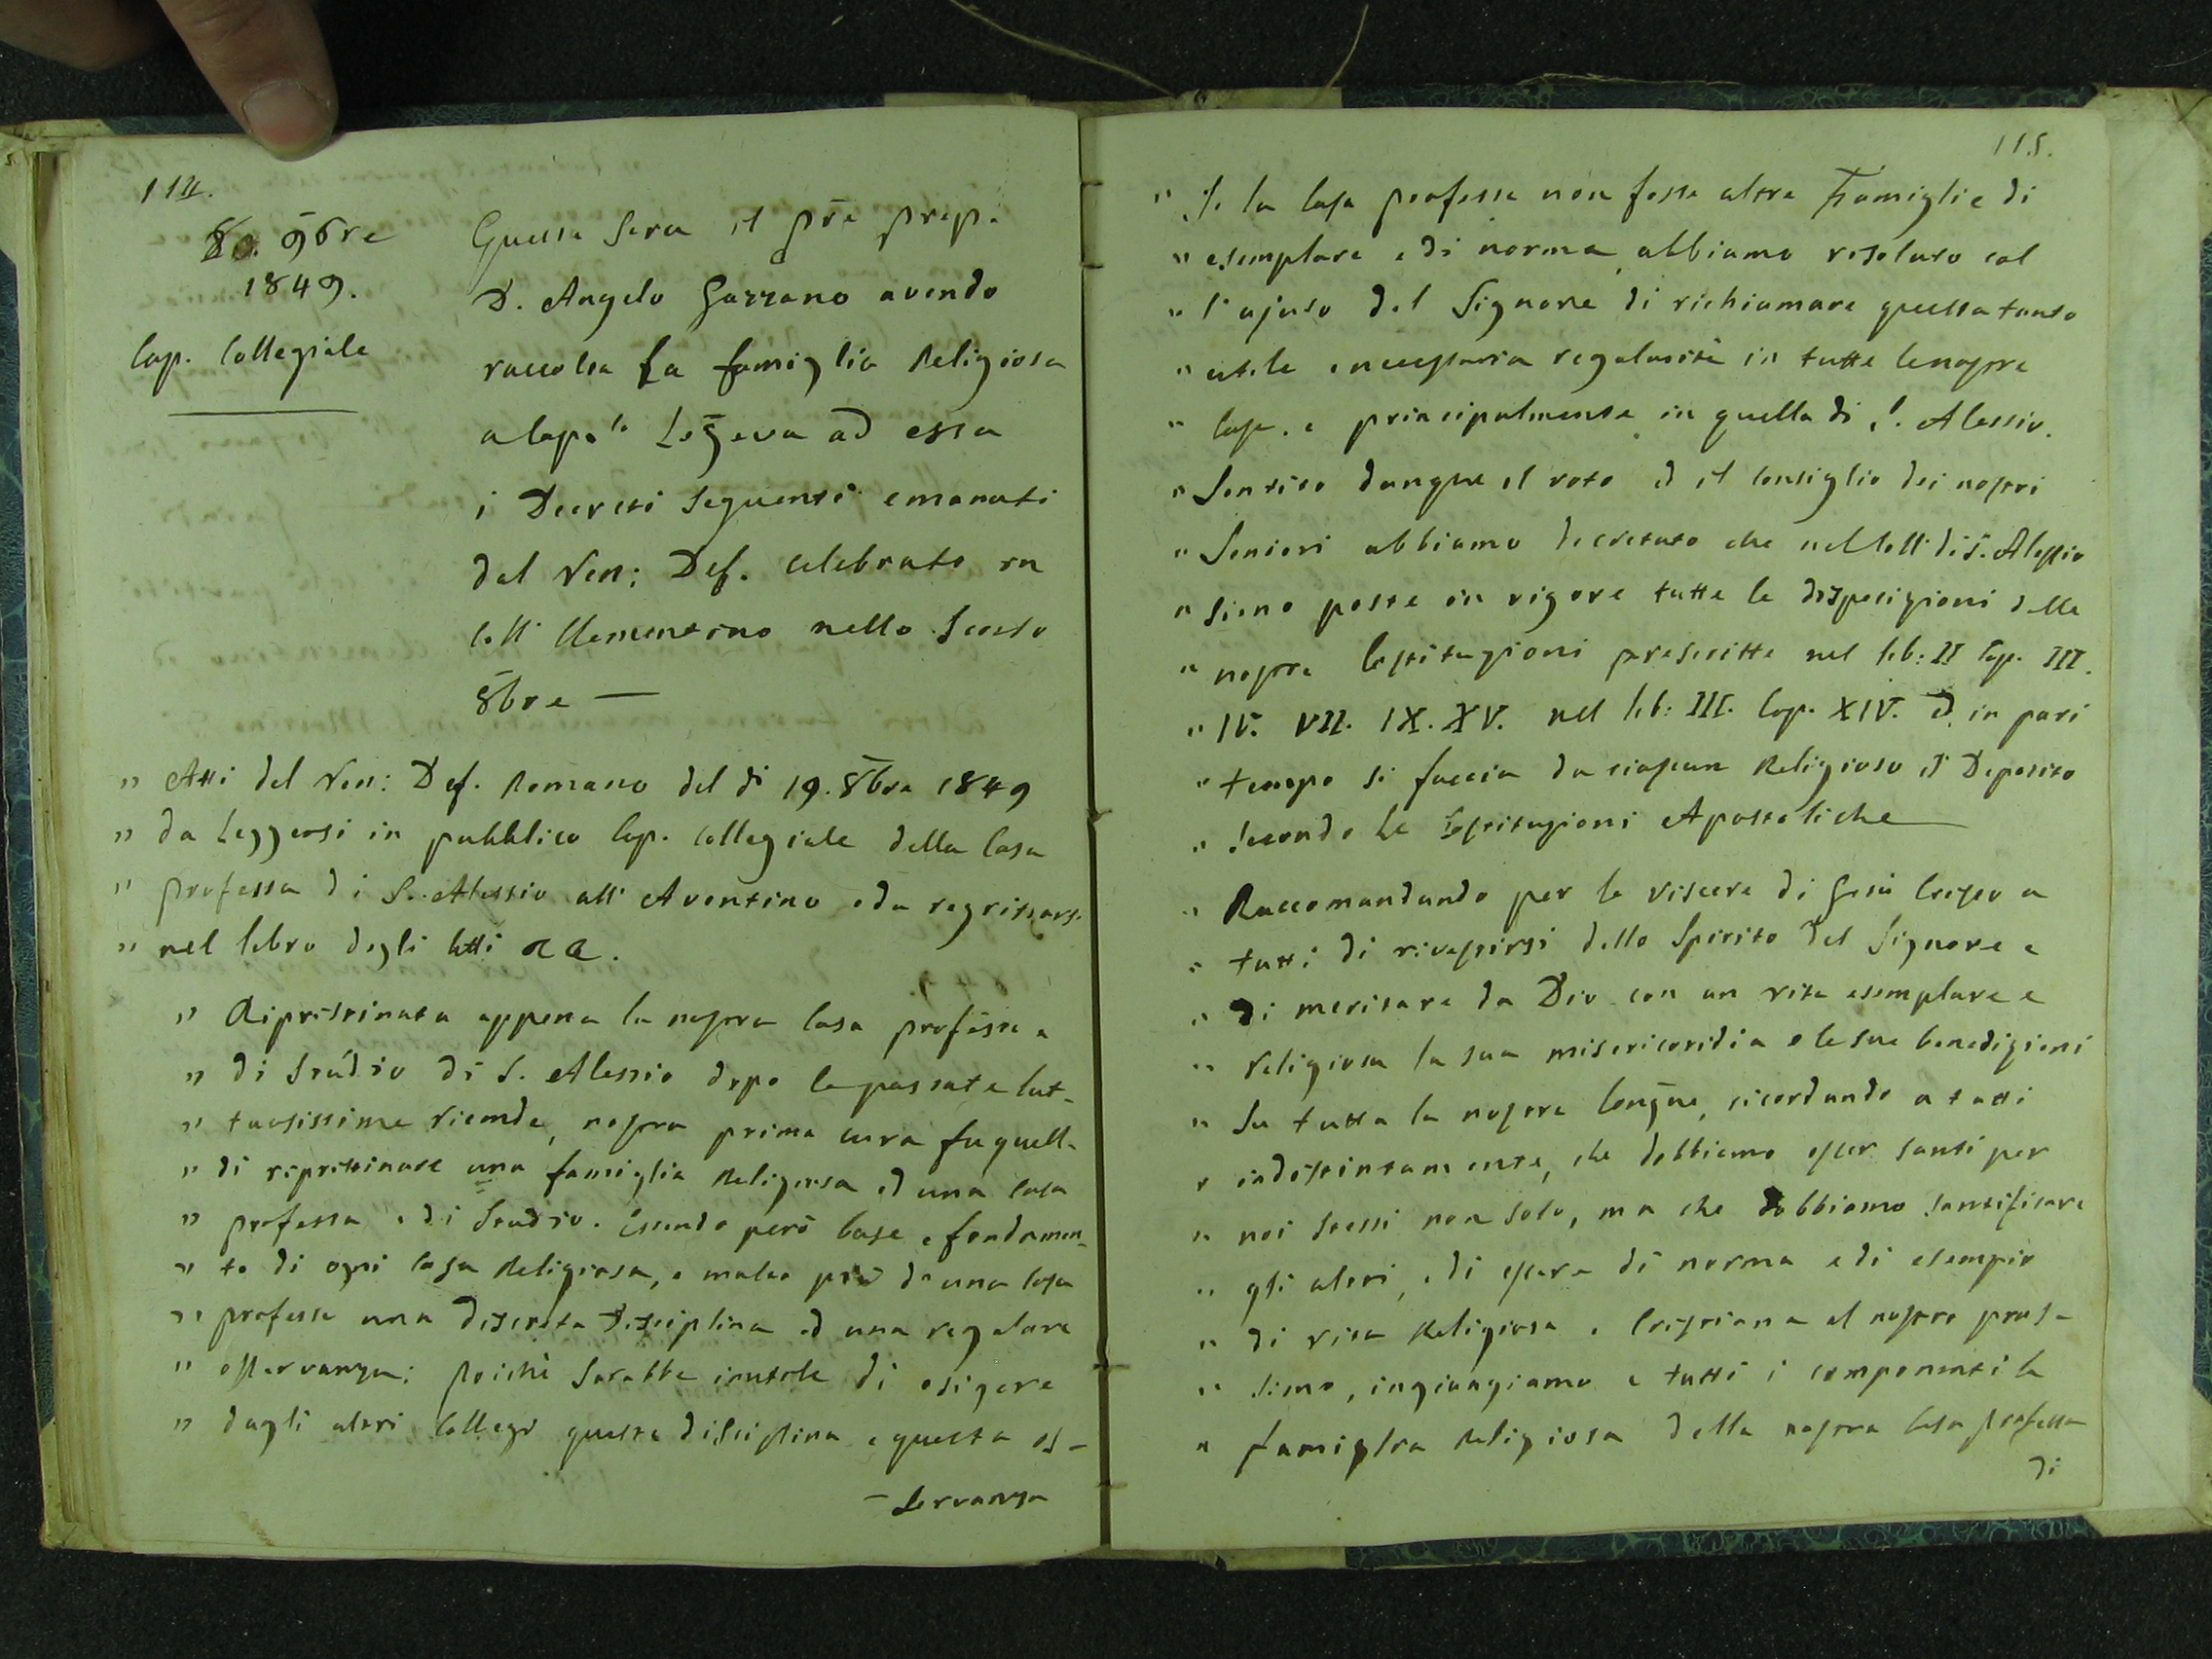 114.
9bre
1849.
Cap. Collegiale
Questa sera il pre prep.
D. Angelo Gazzano avendo
raccolta la famiglia Religiosa
a Capo.lo Legeva ad essa
i Decreti seguenti emanati
dal Ven: Def. celebrato in
Coll Clementino nello scorso
8bre —
" Atti del Ven: Def. Romano del di 19. 8bre 1849
" da Leggersi in pubblico Cap. Collegiale della Casa
" professa di S. Alessio all' Aventino e da registrarsi
" nel libro degli Atti
" Ripristinata appena la nostra Casa professa e
" di Studio di S. Alessio dopo le passate lut-
" tuosissime vicende, nostra prima cura fu quella
" di ripristinare una famiglia Religiosa ed una Casa
" professa e di Studio. Essendo però base e fondamen-
" to di ogni Casa Religiosa, e molto più di una Casa
" professa una discreta Disciplina ed una regolare
" osservanza: poichè sarebbe inutile di esigere
" dagli altri Collegi questa disciplina e questa os-
- servanza
115.
" Se la Casa professa non fosse altre Famiglie di
" esemplare e di norma abbiamo risoluto col
" l'ajuto del Signore di richiamare questa tanto
" utile e necessaria regolarità in tutte le nostre
" Case. e principalmente in quella di S. Alessio.
" Sentito dunque il voto ed il Consiglio dei nostri
" Seniori abbiamo decretato che nel Coll di S. Alessio
" sieno poste in vigore tutte le disposizioni delle
" nostre Costituzioni prescritte nel lib: II Cap. III.
" IV. VII. IX. XV. nel lib: III. Cap. XIV. Ed in pari
" tempo si faccia da ciascun Religioso il Deposito
" secondo le Costituzioni Apostoliche
" Raccomandando per le viscere di Gesù Cristo a
" tutti di rivestirsi dello Spirito del Signore e
" di meritare da Dio con un vita esemplare e
" Religiosa la sua misericordia e le sue benedizioni
" Su tutta la nostra Congne, ricordando a tutti
" indistintamente, che dobbiamo esser santi per
" noi stessi non solo, ma che dobbiamo santificare
" gli altri, e di essere di norma e di esempio
" di vita Religiosa e Cristiana al nostro pros-
" simo, ingiungiamo a tutti i componenti la
" famiglia Religiosa della nostra Casa professa
di